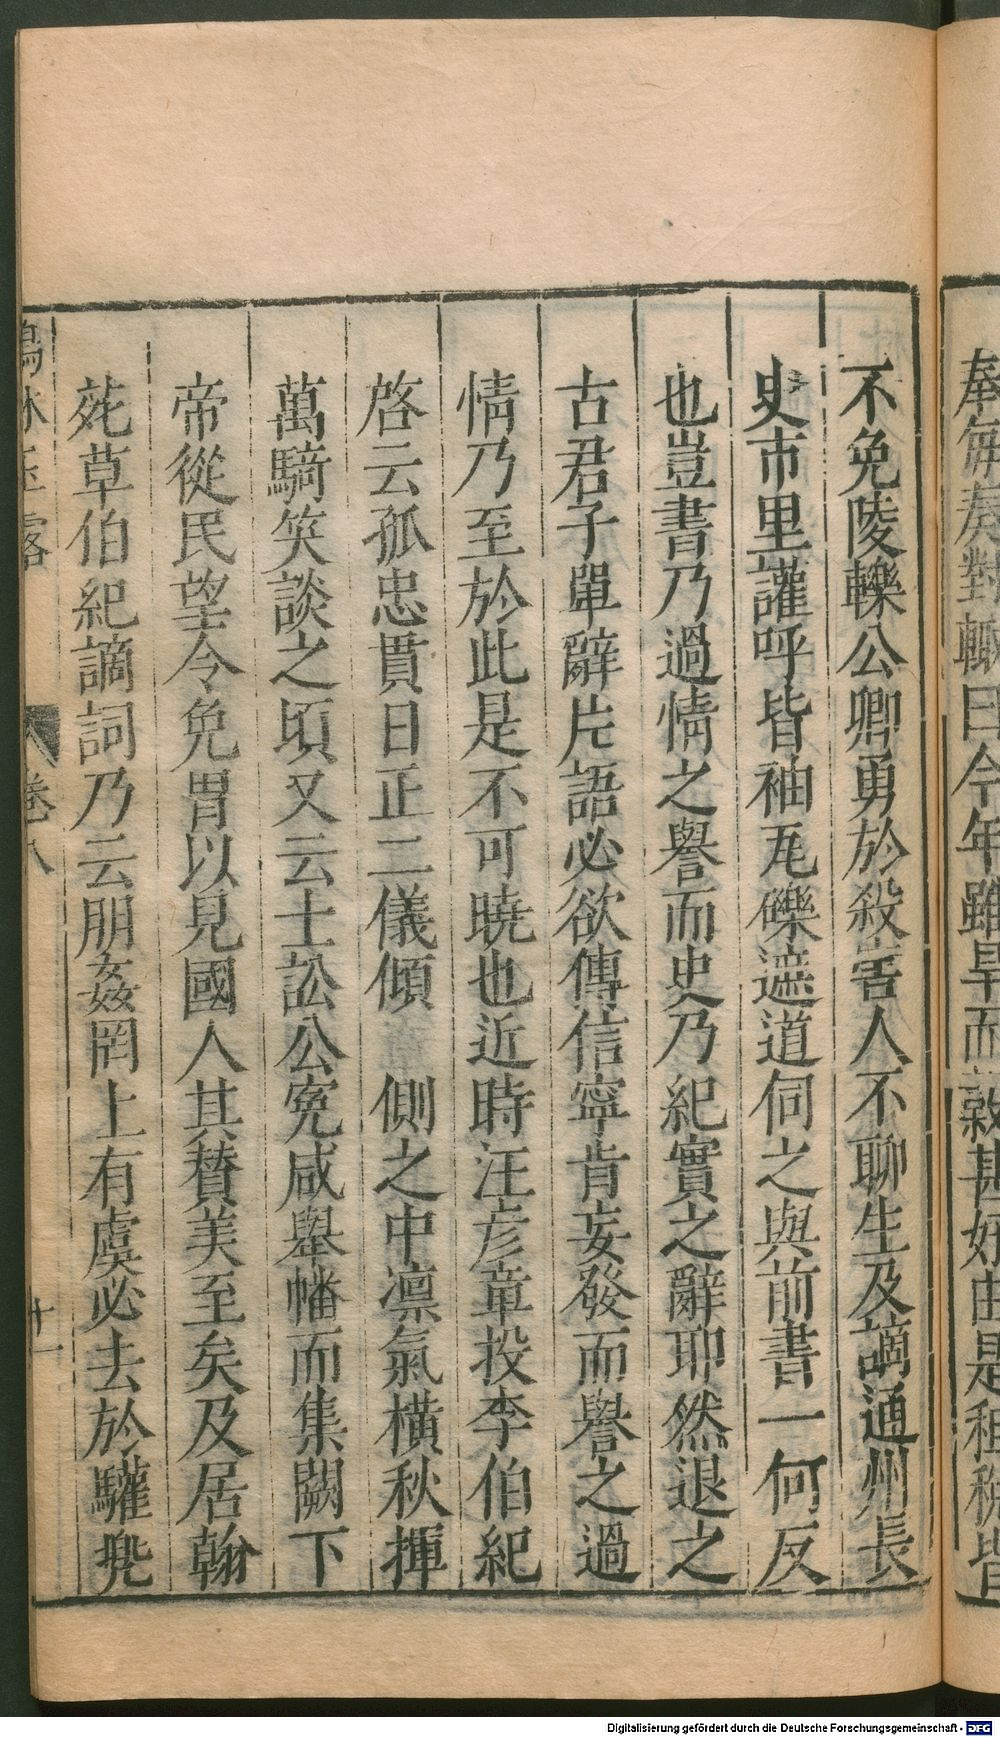 奉每奏對輒曰今年雖旱而穀甚好由是租稅皆
不免陵轢公卿勇於殺害人不聊生及謫通州長
史市里讙呼皆袖瓦礫遮道伺之與前書一何反
也豈書乃過情之譽而史乃紀實之辭耶然退之
古君子單辭片語必欲傳信寧肯妄發而譽之過
情乃至於此是不可曉也近時汪彥章投李伯紀
啓云孤忠貫日正二儀傾側之中凛氣橫秋揮
萬騎笑談之頃又云士訟公寃咸舉幡而集闕下
帝從民望令免胄以見國人其贊美至矣及居翰
苑草伯紀謫詞乃云朋姦罔上有虞必去於驩兠
鶴林玉露 卷八 十一
Digitalisierung gefördert durch die Deutsche Forschungsgemeinschaft - DFG